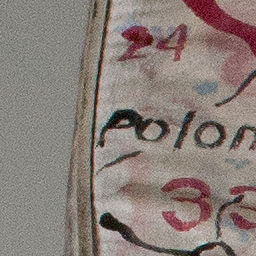 24
Polon
33